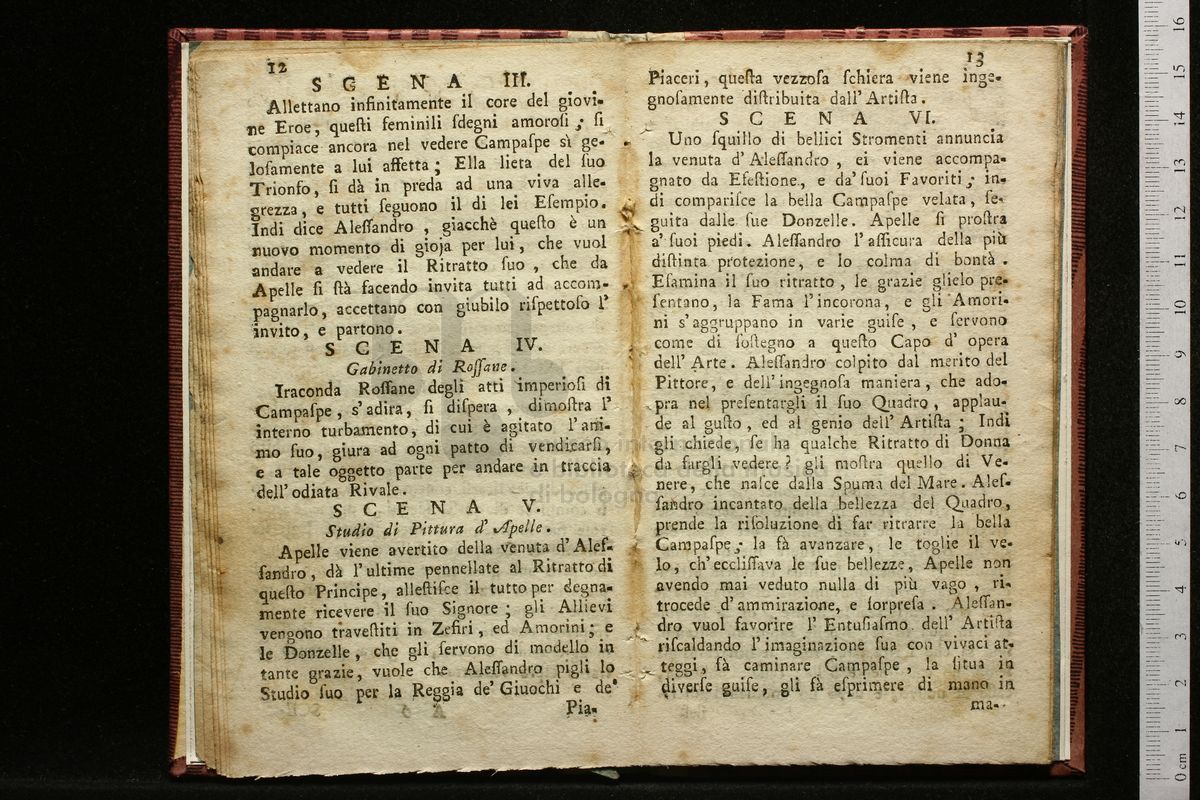 12
SCENA III.
Allettano infinitamente il core del giovi-
ne Eroe, queſti feminili ſdegni amoroſi; ſi
compiace ancora nel vedere Campaſpe sì ge-
loſamente a lui affetta; Ella lieta del ſuo
Trionfo, ſi dà in preda ad una viva alle-
grezza, e tutti ſeguono il di lei Eſempio.
Indi dice Aleſſandro, giacchè queſto è un
nuovo momento di gioja per lui, che vuol
andare a vedere il Ritratto ſuo, che da
Apelle ſi ſtà facendo invita tutti ad accom-
pagnarlo, accettano con giubilo riſpettoſo l'
invito, e partono.
SCENA IV.
Gabinetto di Roſſane.
Iraconda Roſſane degli atti imperioſi di
Campaſpe, s'adira, ſi diſpera, dimoſtra l'
interno turbamento, di cui è agitato l'ani-
mo ſuo, giura ad ogni patto di vendicarſi,
e a tale oggetto parte per andare in traccia
dell'odiata Rivale.
SCENA V.
Studio di Pittura d'Apelle.
Apelle viene avertito della venuta d'Aleſ-
ſandro, dà l'ultime pennellate al Ritratto di
queſto Principe, alleſtiſce il tutto per degna-
mente ricevere il ſuo Signore; gli Allievi
vengono traveſtiti in Zefiri, ed Amorini; e
le Donzelle, che gli ſervono di modello in
tante grazie, vuole che Aleſſandro pigli lo
Studio ſuo per la Reggia de' Giuochi e de'
Pia-
13
Piaceri, queſta vezzoſa ſchiera viene inge-
gnoſamente diſtribuita dall'Artiſta.
SCENA VI.
Uno ſquillo di bellici Stromenti annuncia
la venuta d'Aleſſandro, ei viene accompa-
gnato da Efeſtione, e da' ſuoi Favoriti; in-
di compariſce la bella Campaſpe velata, ſe-
guita dalle ſue Donzelle. Apelle ſi proſtra
a' ſuoi piedi. Aleſſandro l'aſſicura della più
diſtinta protezione, e lo colma di bontà.
Eſamina il ſuo ritratto, le grazie glielo pre-
ſentano, la Fama l'incorona, e gli Amori-
ni s'aggruppano in varie guiſe, e ſervono
come di ſoſtegno a queſto Capo d'opera
dell'Arte. Aleſſandro colpito dal merito del
Pittore, e dell'ingegnoſa maniera, che ado-
pra nel preſentargli il ſuo Quadro, applau-
de al guſto, ed al genio dell'Artiſta; Indi
gli chiede, ſe ha qualche Ritratto di Donna
da fargli vedere? gli moſtra quello di Ve-
nere, che naſce dalla Spuma del Mare. Aleſ-
ſandro incantato della bellezza del Quadro,
prende la riſoluzione di far ritrarre la bella
Campaſpe; la fà avanzare, le toglie il ve-
lo, ch'eccliſſava le ſue bellezze, Apelle non
avendo mai veduto nulla di più vago, ri-
trocede d'ammirazione, e ſorpreſa. Aleſſan-
dro vuol favorire l'Entuſiaſmo dell'Artiſta
riſcaldando l'imaginazione ſua con vivaci at-
teggi, fà caminare Campaſpe, la ſitua in
diverſe guiſe, gli fà eſprimere di mano in
ma-
0 cm 1 2 3 4 5 6 7 8 9 10 11 12 13 14 15 16